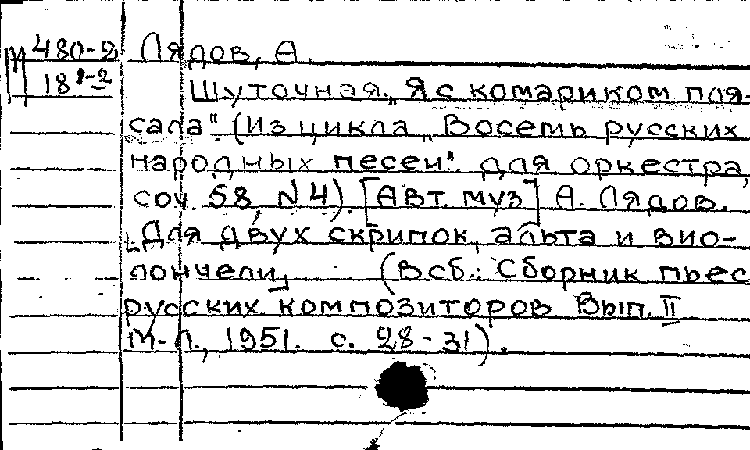 М 480-2 Лядов, А.
18 1-2
Шуточная. „Я с комариком пля-
сала". (Из цикла „Восемь русских
народных песен" для оркестра,
соч. 58, N 4). [Авт. муз] А. Лядов.
[Для двух скрипок, альта и вио-
лончели] (В сб.: Сборник пьес
русских композиторов Вып. II
М.-Л., 1951. с. 28-31).